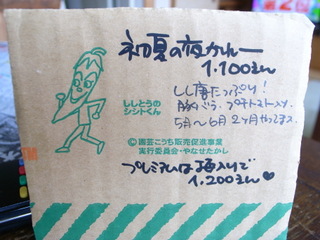 初夏の夜カレー
1,100えん
しし唐たっぷり!
豚バラ、プチトマト入り。
5月〜6月 2ヶ月やってます。
ししとうの
シシトくん
© 園芸こうち販売促進事業
実行委員会・やなせたかし
プレミアムは極入りで
1,200えん♥